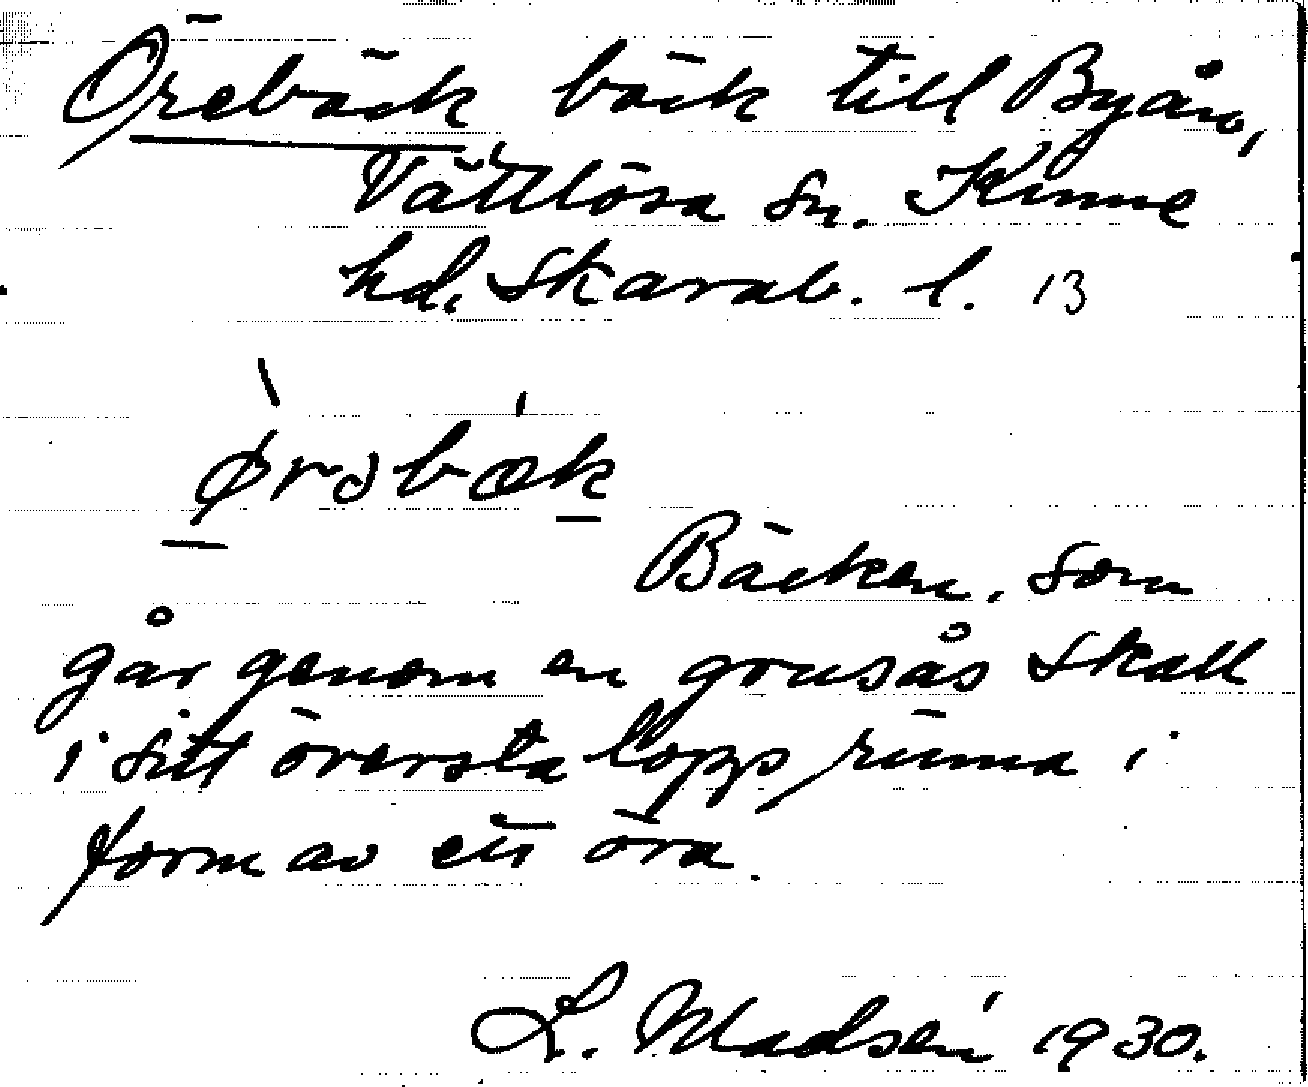 Örebäck bäck till Byån,
Vättlösa sn. Kinne
hd. Skarab. l. 13
ørəbæk
Bäcken, som
går genom en grusås skall
i sitt översta lopp rinna i
form av ett öra.
L. Madsén 1930.